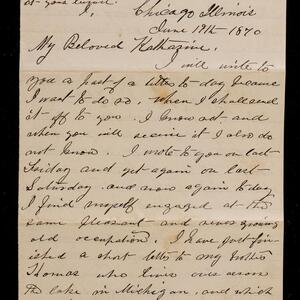 at your request.
Chicago Illinois
June 19th 1870
My Beloved Katharine.
I will write to
you a part of a letter to day because
I want to do so. When I shall send
it off to you I know not. and
when you will receive it I also do
not know. I wrote to you on last
Friday and yet again on last
Saturday. and now again to day
I find myself engaged at the
same pleasant and never growing
old occupation. I have just fin-
ished a short letter to my brother
Thomas who lives over across
the lake in Michigan, and which